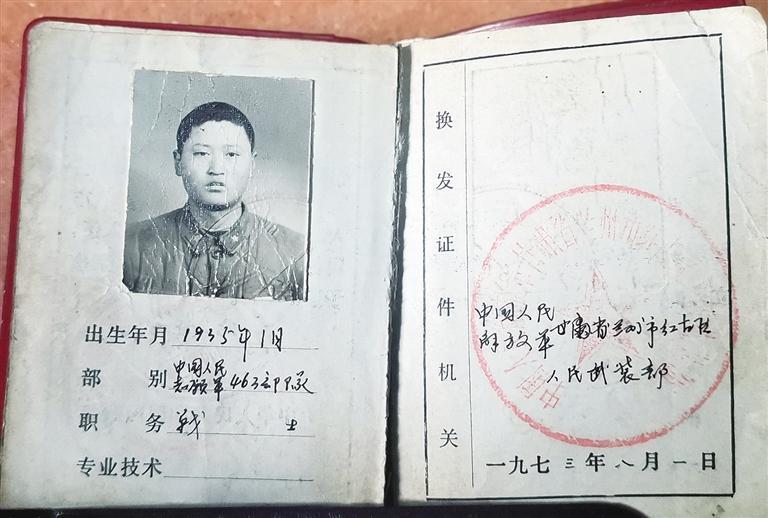 出生年月 1935年1月
部别 中国人民
志愿军463部队
职务 战士
专业技术
换发证件机关
中国人民
解放军甘肃省兰州市红古区
人民武装部
一九七三年八月一日